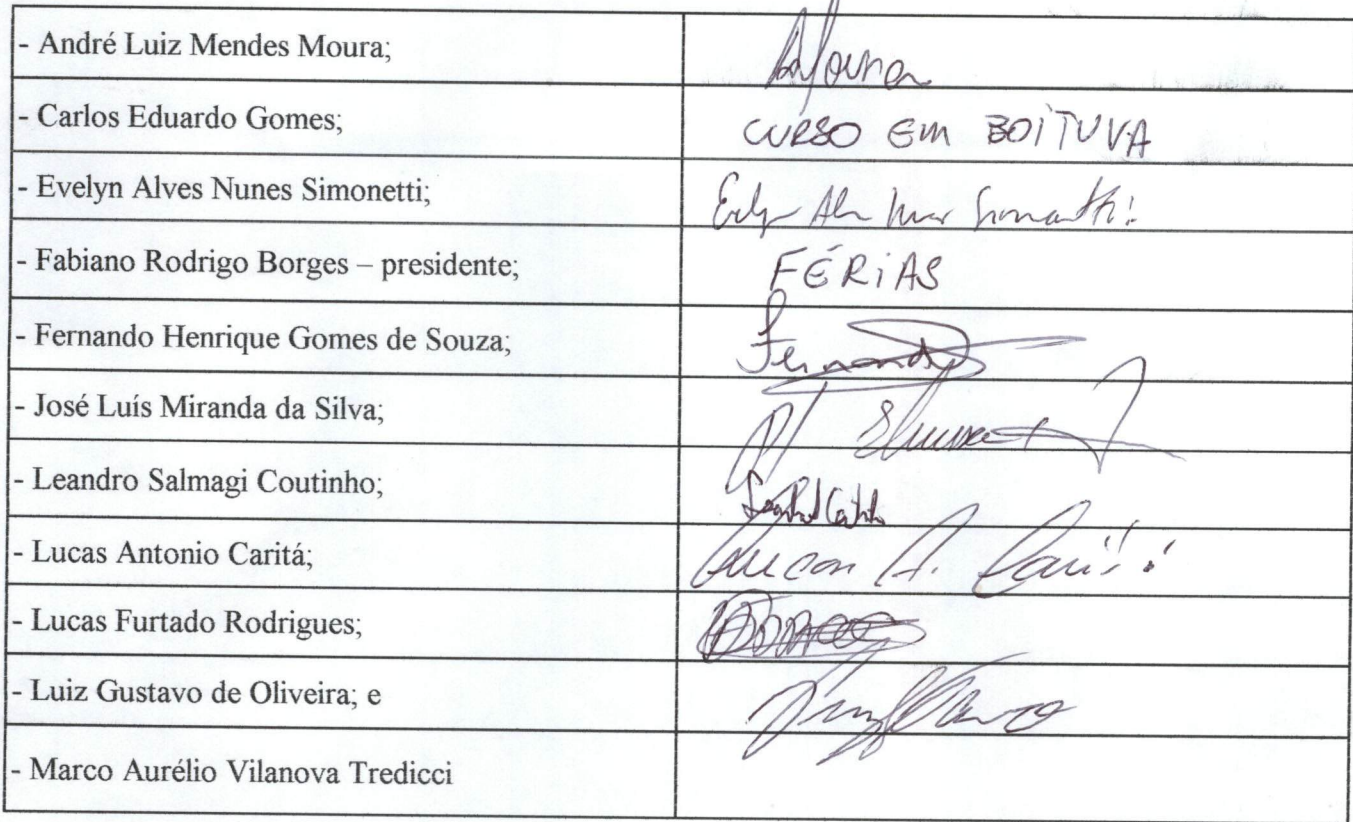 - André Luiz Mendes Moura; AMoura
- Carlos Eduardo Gomes; CURSO EM BOITUVA
- Evelyn Alves Nunes Simonetti;
- Fabiano Rodrigo Borges – presidente; FÉRIAS
- Fernando Henrique Gomes de Souza; Fernando
- José Luís Miranda da Silva;
- Leandro Salmagi Coutinho;
- Lucas Antonio Caritá; Lucas A. Caritá
- Lucas Furtado Rodrigues;
- Luiz Gustavo de Oliveira; e
- Marco Aurélio Vilanova Tredicci